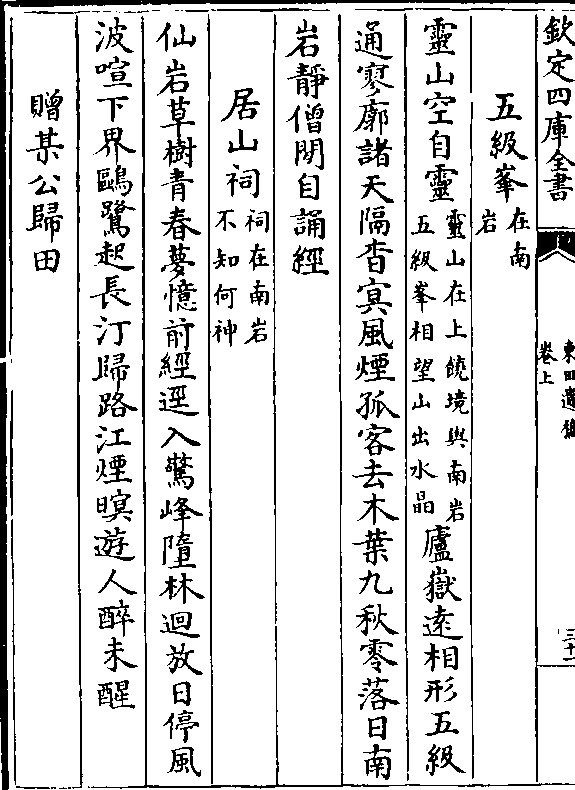 欽定四庫全書
卷上
三十一
五級峯在南岩
靈山空自靈靈山在上饒境與南岩五級峯相望山出水晶廬嶽遠相形五級
通寥廓諸天隔杳㝠風煙孤客去木葉九秋零落日南
岩靜僧閒自誦經
居山祠祠在南岩不知何神
仙岩草樹青春夢憶前經逕入鷲峰墮林迴放日停風
波喧下界鷗鷺起長汀歸路江煙暝遊人醉未醒
贈某公歸田